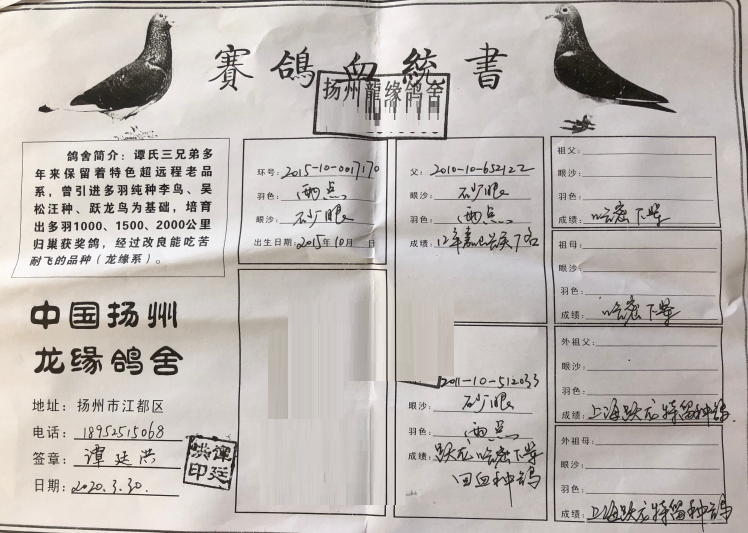 賽鸽血統書
扬州龍缘鸽舍
鸽舍简介：谭氏三兄弟多
年来保留着特色超远程老品
系，曾引进多羽纯种李鸟、吴
松汪种、跃龙鸟为基础，培育
出多羽1000、1500、2000公里
归巢获奖鸽，经过改良能吃苦
耐飞的品种（龙缘系）。
中国扬州
龙缘鸽舍
地址：扬州市江都区
电话：18952515068
签章：谭廷洪
日期：2020.3.30.
谭廷洪印
环号：2015-10-0017170
羽色：雨点
眼沙：砂眼
出生日期：2015年10月 日
父：2010-10-652122
眼沙：砂眼
羽色：雨点
成绩：12年
2011-10-512033
眼沙：砂眼
羽色：雨点
成绩：跃龙哈密下笨
回血种鸽
祖父：
眼沙：
羽色：
成绩：哈密下笨
祖母：
眼沙：
羽色：
成绩：哈密下笨
外祖父：
眼沙：
羽色：
成绩：上海跃龙特留种鸽
外祖母：
眼沙：
羽色：
成绩：上海跃龙特留种鸽